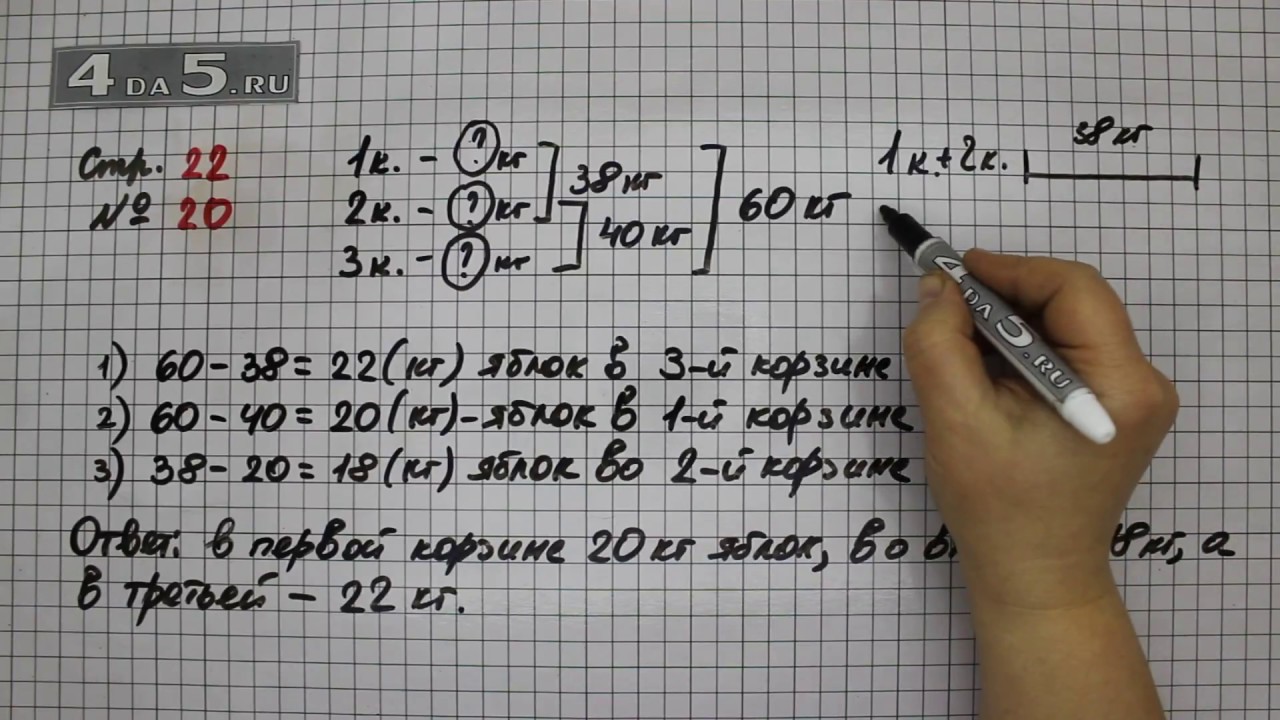 4 DA 5.RU
Стр. 22
№ 20
1к. - ? кг
2к. - ? кг
3к. - ? кг
38 кг
40 кг
60 кг
1к.+2к.
38 кг
4 DA 5.RU
1) 60 - 38 = 22 (кг) яблок в 3-й корзине
2) 60 - 40 = 20 (кг) - яблок в 1-й корзине
3) 38 - 20 = 18 (кг) яблок во 2-й корзине
Ответ: в первой корзине 20 кг яблок, во 8кг, а
в третьей - 22 кг.